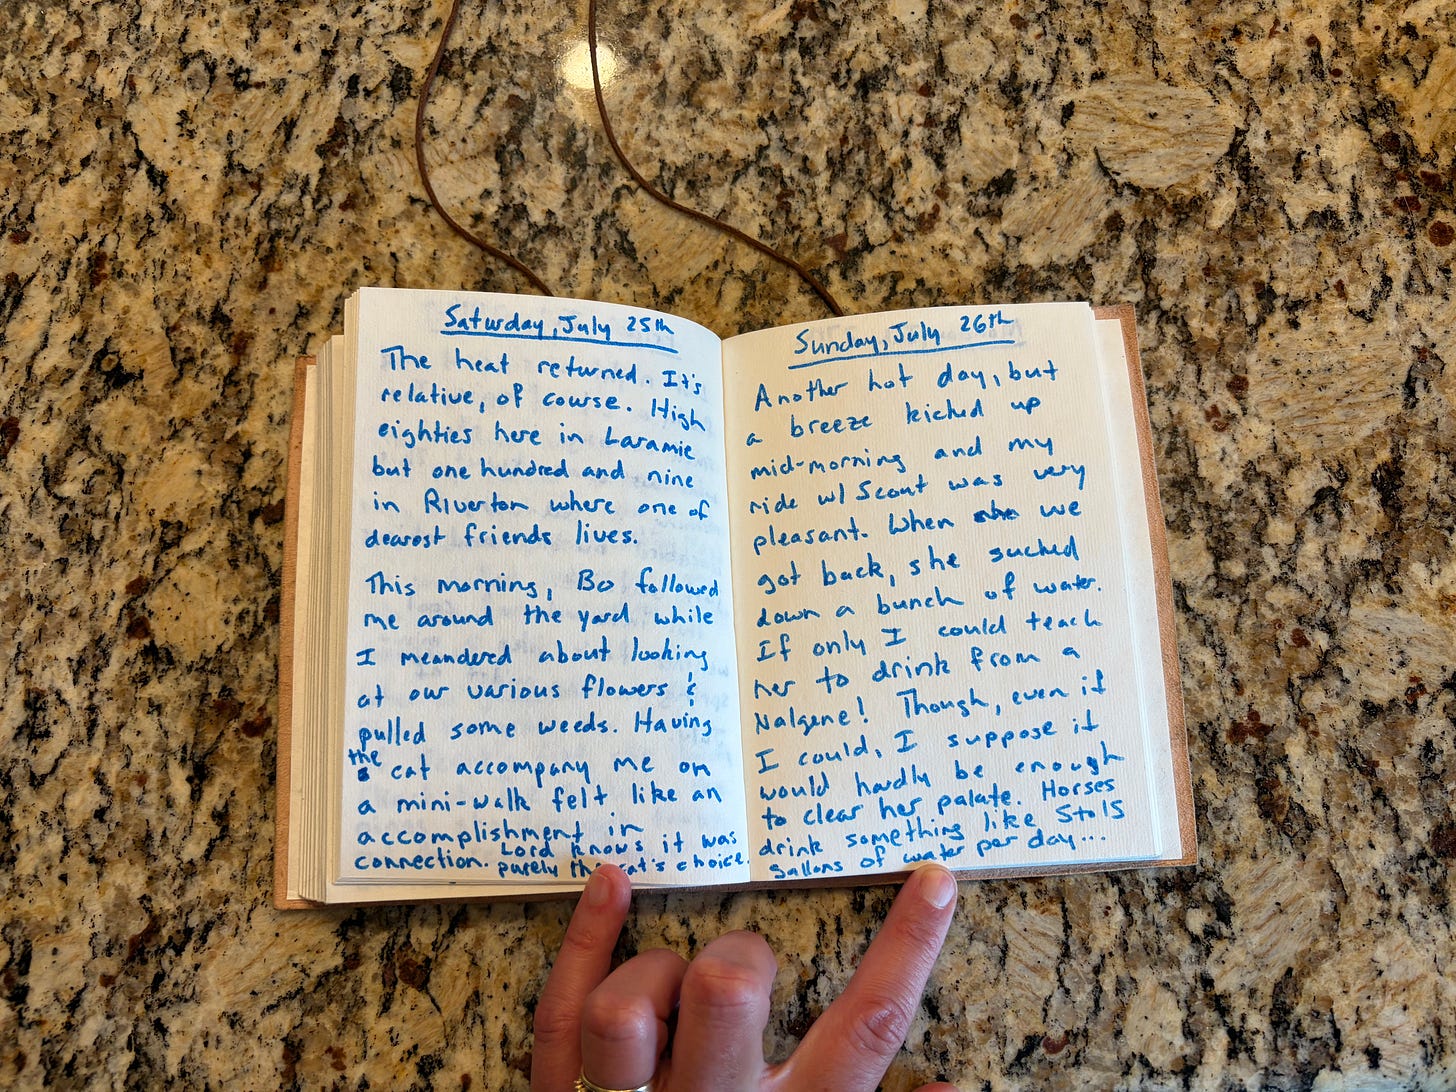 Saturday, July 25th
The heat returned. It's
relative, of course. High
eighties here in Laramie
but one hundred and nine
in Riverton where one of
dearest friends lives.
This morning, Bo followed
me around the yard while
I meandered about looking
at our various flowers &
pulled some weeds. Having
the cat accompany me on
a mini-walk felt like an
accomplishment in
connection. Lord knows it was
purely the cat's choice.
Sunday, July 26th
Another hot day, but
a breeze kicked up
mid-morning and my
ride w/ Scout was very
pleasant. When she we
got back, she sucked
down a bunch of water.
If only I could teach
her to drink from a
Nalgene! Though, even if
I could, I suppose it
would hardly be enough
to clear her palate. Horses
drink something like 5 to 15
gallons of water per day...